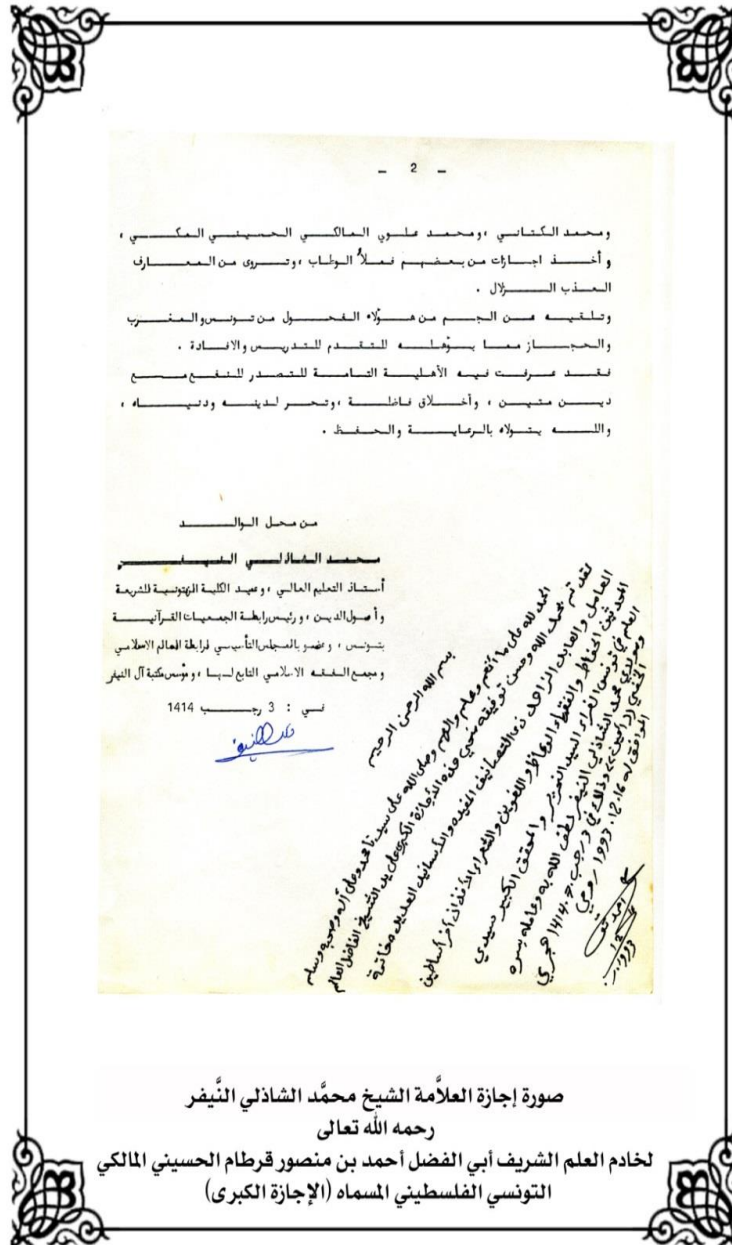 - 2 -
ومحمد الكتاني ، ومحمد علوي المالكي الحسيني المكي ،
وأخذ اجازات من بعضهم فملأ الوطاب ، وتروى من المعارف
العذب الزلال .
وتلقيه عن الجم من هؤلاء الفحول من تونس والمغرب
والحجاز مما يؤهله للتقدم للتدريس والافادة .
فقد عرفت فيه الأهلية التامة للتصدر للنفع مع
دين متين ، وأخلاق فاضلة ، وتحر لدينه ودنياه ،
والله يتولاه بالرعاية والحفظ .
من محل الوالد
محمد الشاذلي النيفر
أستاذ التعليم العالي ، وعميد الكلية الزيتونية للشريعة
وأصول الدين ، ورئيس رابطة الجمعيات القرآنية
بتونس ، وعضو بالمجلس التأسيسي لرابطة العالم الاسلامي
ومجمع الفقه الاسلامي التابع لها ، ومؤسس مكتبة آل النيفر
في : 3 رجب 1414
بسم الله الرحمن الرحيم
الحمد لله على ما أنعم وعلم وألهم وصلى الله على سيدنا محمد وعلى آله وصحبه وسلم
لقد تم بحمد الله وحسن توفيقه منحي هذه الإجازة الكبرى على يد الشيخ الفاضل العالم
العامل والعابد الزاهد ذي التصانيف المفيدة والأسانيد العديدة
المحدثين الحفاظ والفقهاء والوعاظ واللغويين والشعراء الأفذاذ آخر أساطين
العلم في تونس الغراء السيد النحرير والمحقق الكبير سيدي
محمد الشاذلي النيفر لطف الله به وعامله بسره
الخفي آمين وذلك في رجب 1414 هجري
الموافق له 16.12.1993 رومي
أحمد
صورة إجازة العلاَّمة الشيخ محمَّد الشاذلي النَّيفر
رحمه الله تعالى
لخادم العلم الشريف أبي الفضل أحمد بن منصور قرطام الحسيني المالكي
التونسي الفلسطيني المسماه (الإجازة الكبرى)